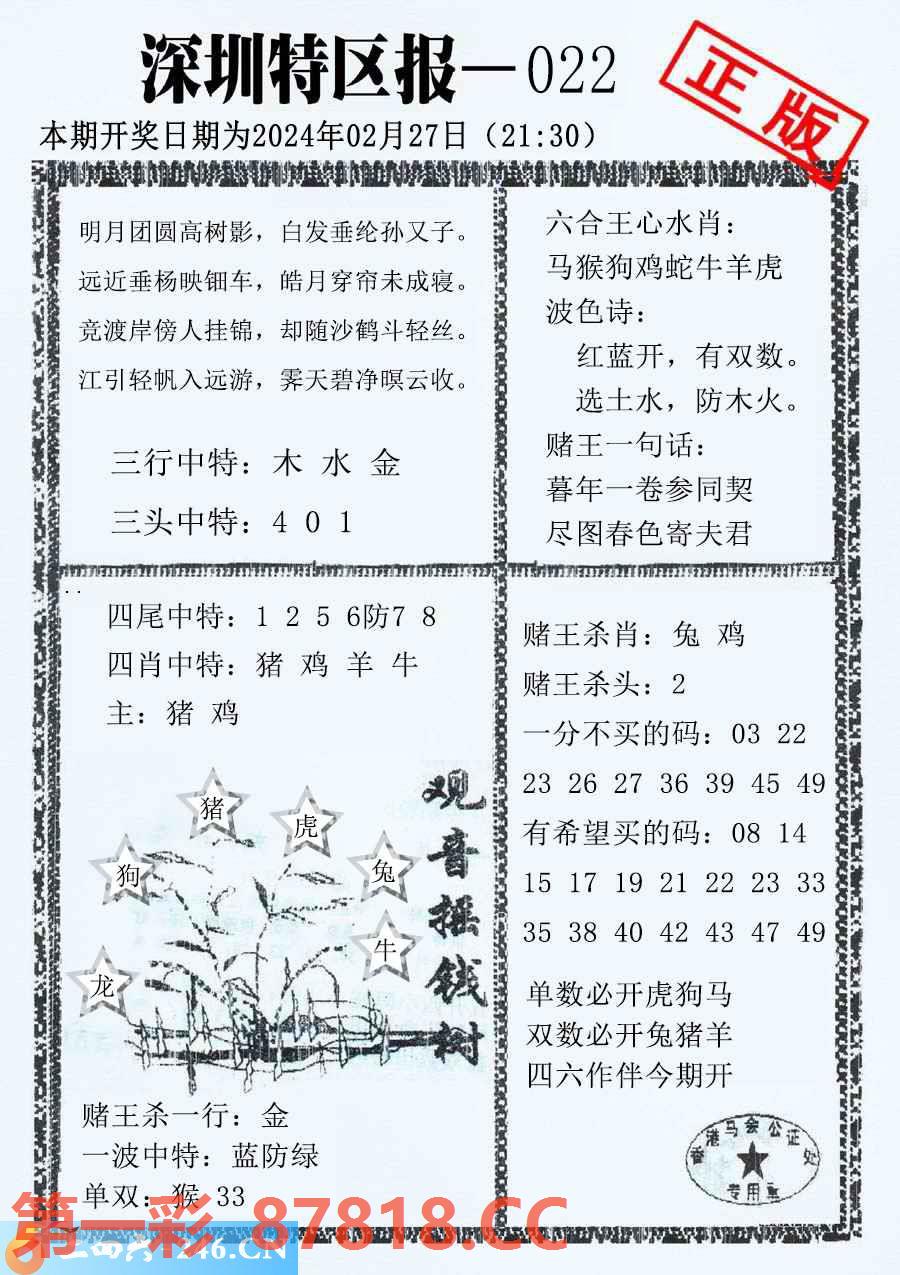 深圳特区报—022
正版
本期开奖日期为2024年02月27日（21:30）
明月团圆高树影，白发垂纶孙又子。
远近垂杨映钿车，皓月穿帘未成寝。
竞渡岸傍人挂锦，却随沙鹤斗轻丝。
江引轻帆入远游，霁天碧净暝云收。
三行中特：木 水 金
三头中特：4 0 1
六合王心水肖：
马猴狗鸡蛇牛羊虎
波色诗：
红蓝开，有双数。
选土水，防木火。
赌王一句话：
暮年一卷参同契
尽图春色寄夫君
四尾中特：1 2 5 6防7 8
四肖中特：猪 鸡 羊 牛
主：猪 鸡
猪
虎
狗
兔
牛
龙
观音摇钱树
赌王杀一行：金
一波中特：蓝防绿
单双：猴 33
赌王杀肖：兔 鸡
赌王杀头：2
一分不买的码：03 22
23 26 27 36 39 45 49
有希望买的码：08 14
15 17 19 21 22 23 33
35 38 40 42 43 47 49
单数必开虎狗马
双数必开兔猪羊
四六作伴今期开
香港马会公证处
专用章
第一彩 87818.CC
246.CN